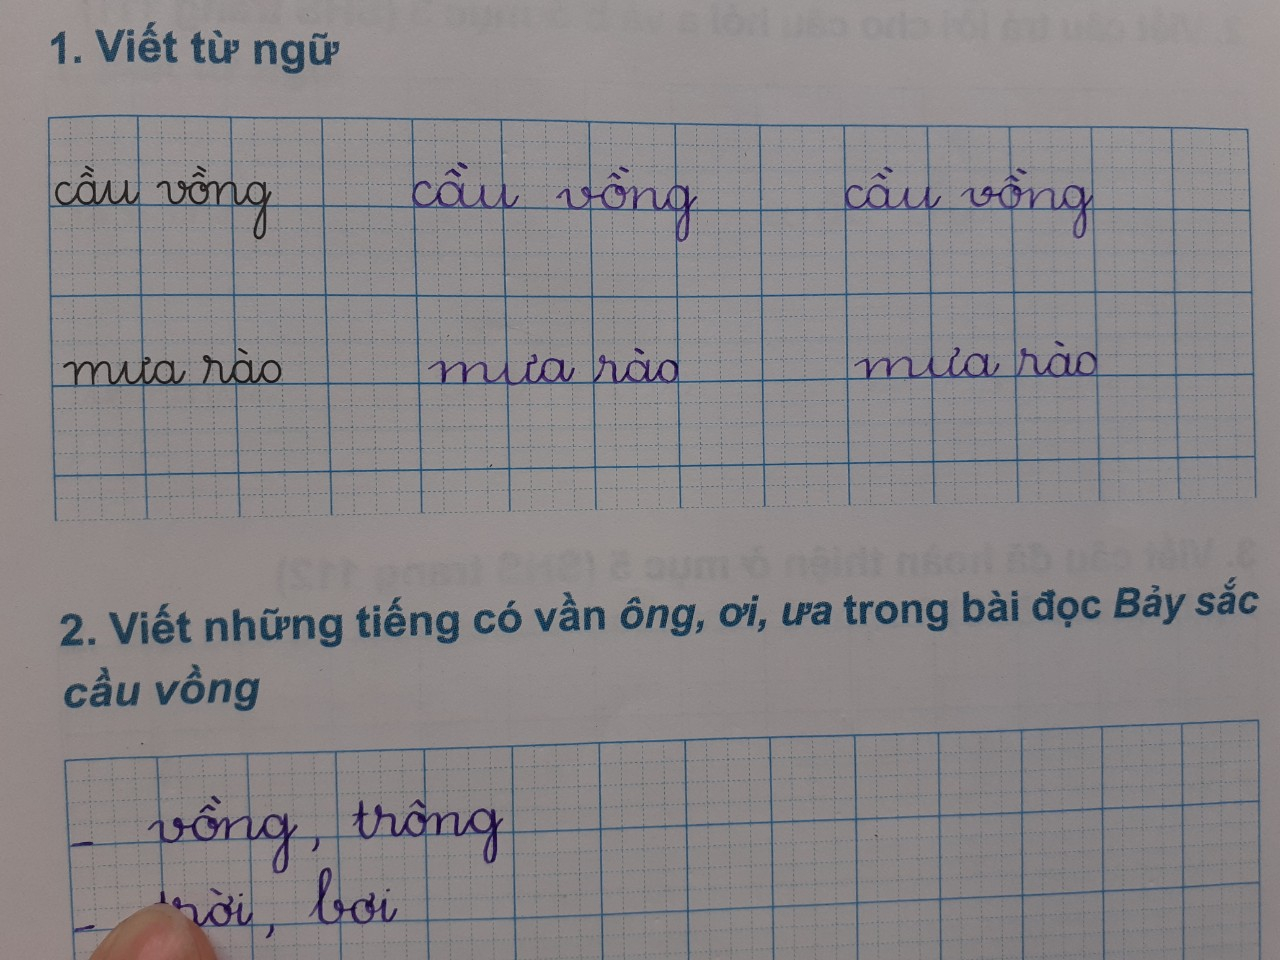 1. Viết từ ngữ
cầu vồng cầu vồng cầu vồng
mưa rào mưa rào mưa rào
2. Viết những tiếng có vần ông, ơi, ưa trong bài đọc Bảy sắc
cầu vồng
- vồng, trông
- trời, bơi